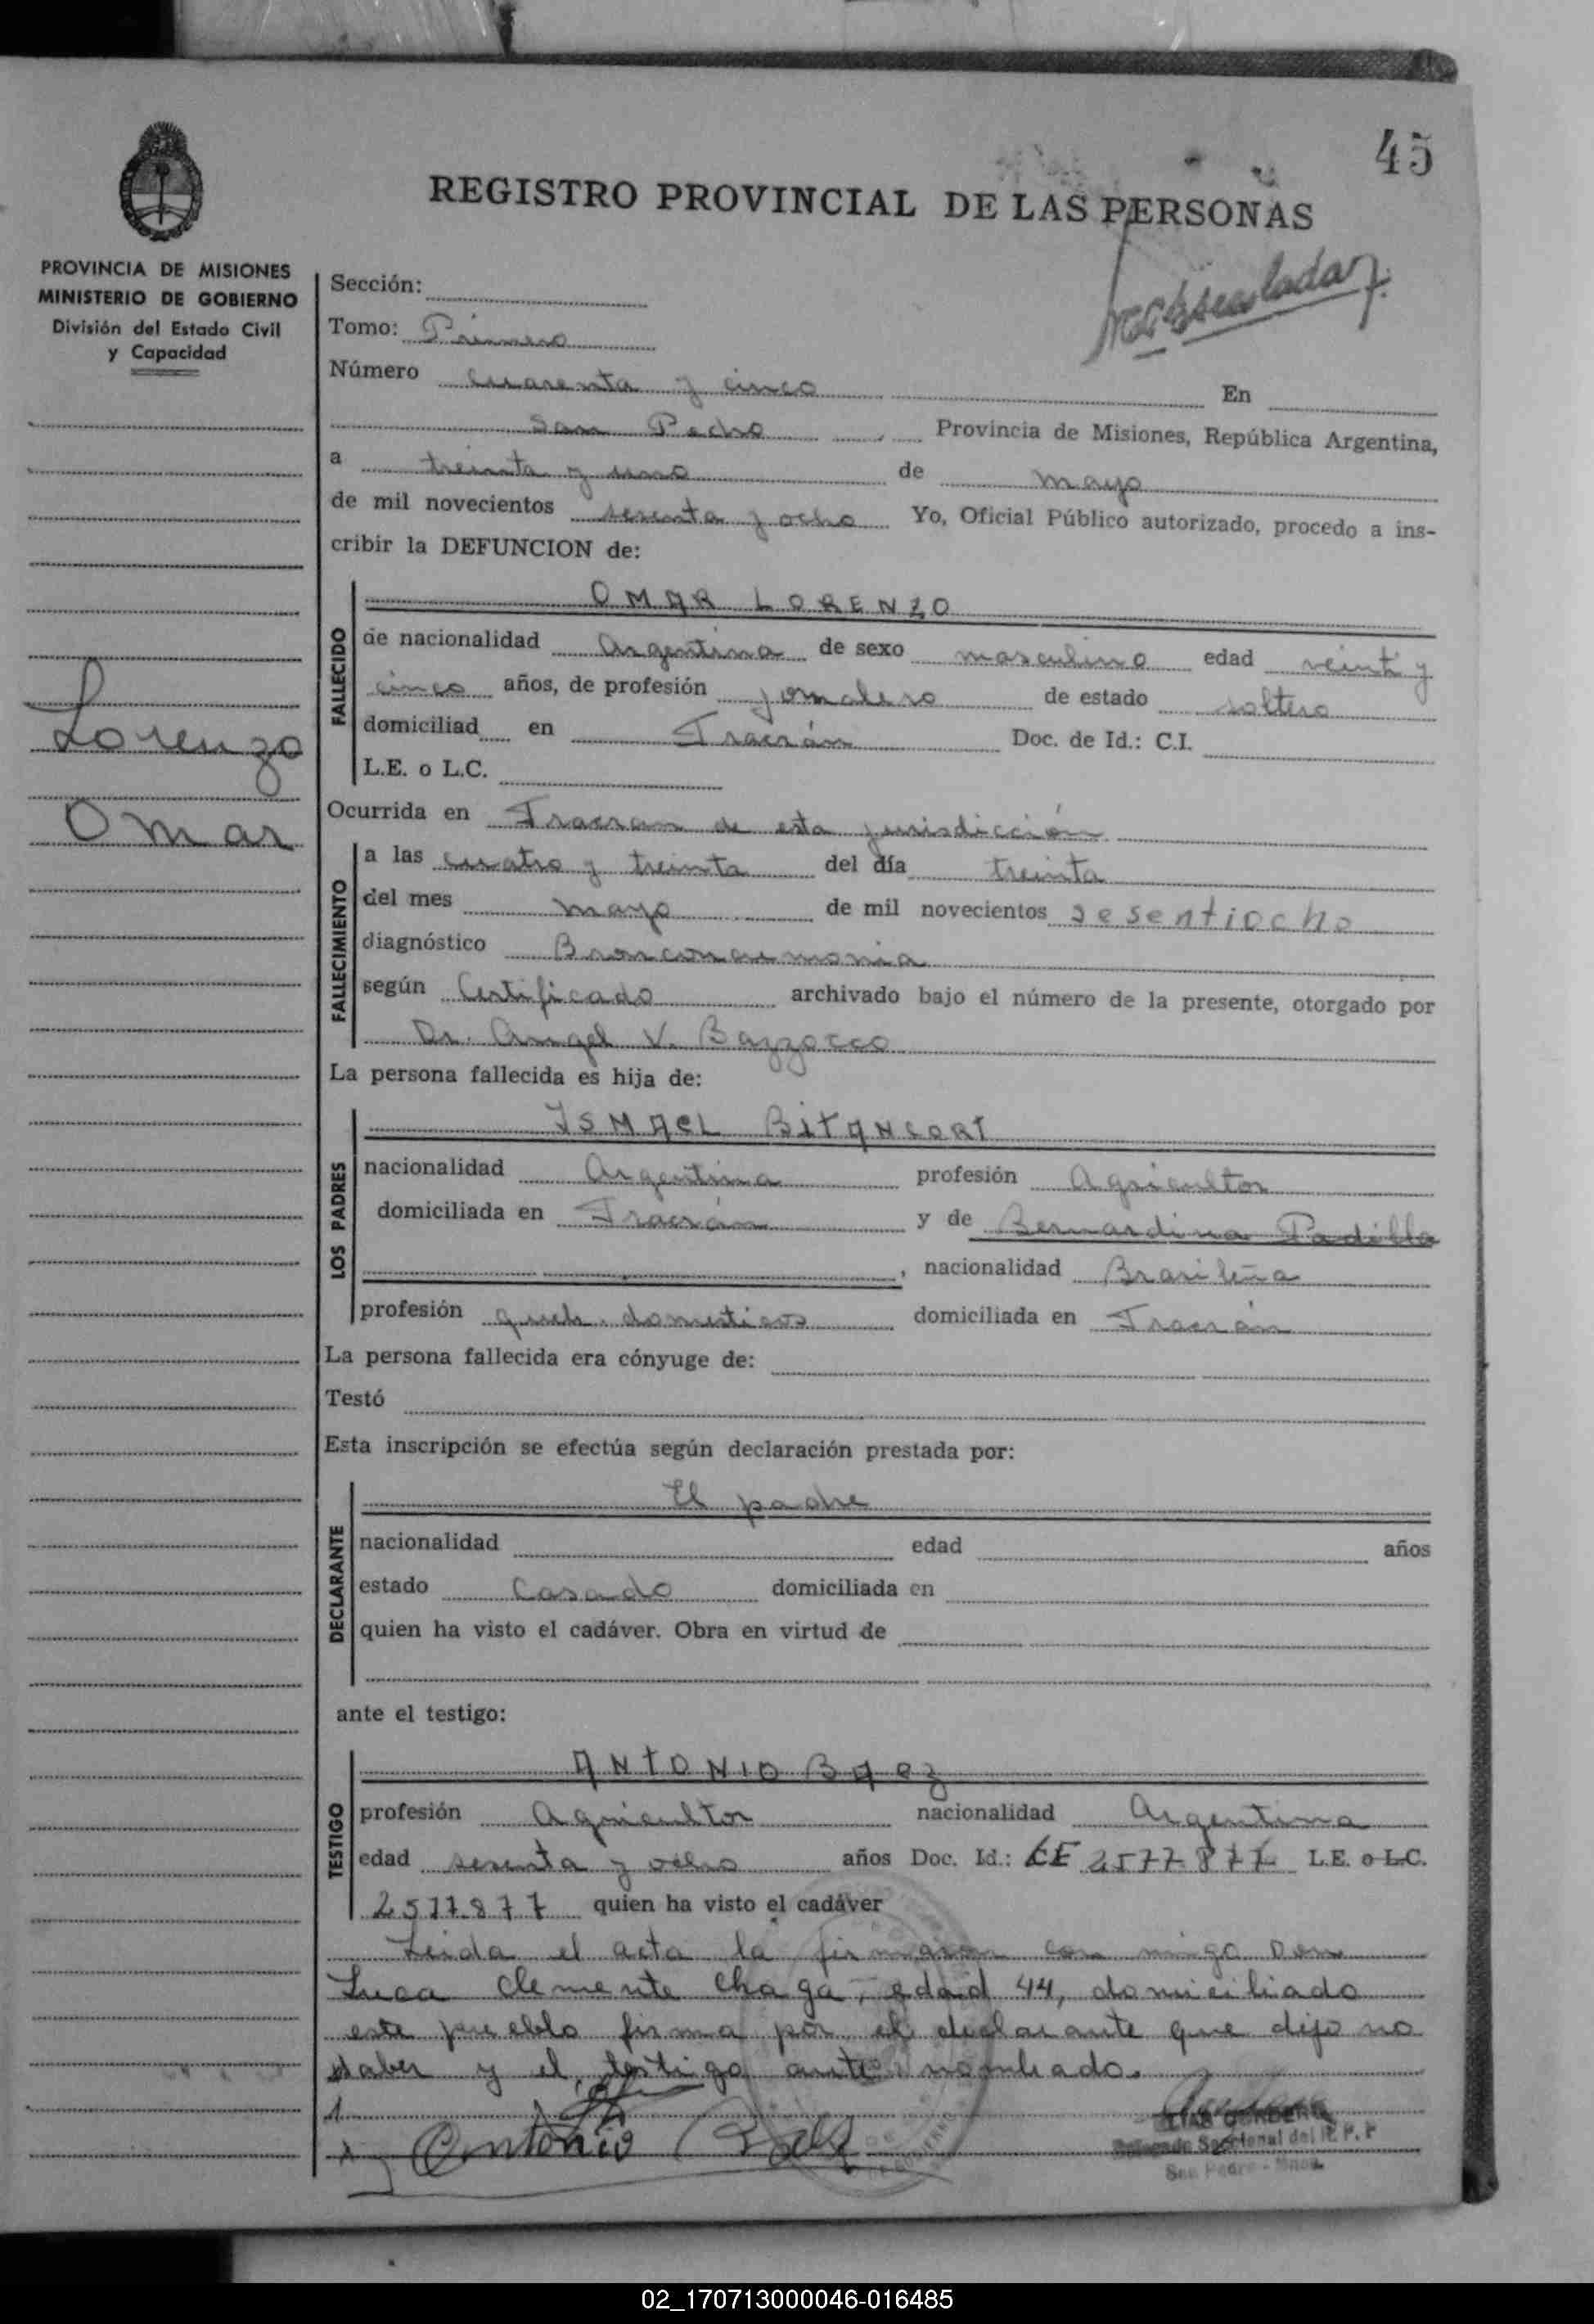 45
REGISTRO PROVINCIAL DE LAS PERSONAS
PROVINCIA DE MISIONES
MINISTERIO DE GOBIERNO
División del Estado Civil
y Capacidad
Sección:
Tomo: Primero
Número cuarenta y cinco En
San Pedro, Provincia de Misiones, República Argentina,
a treinta y uno de mayo
de mil novecientos sesenta y ocho Yo, Oficial Público autorizado, procedo a ins-
cribir la DEFUNCION de:
Lorenzo
Omar
FALLECIDO
OMAR LORENZO
de nacionalidad Argentina de sexo masculino edad veinti y
cinco años, de profesión jornalero de estado soltero
domiciliad en Tracrán Doc. de Id.: C.I.
L.E. o L.C.
Ocurrida en Tracran de esta jurisdicción
FALLECIMIENTO
a las cuatro y treinta del día treinta
del mes mayo de mil novecientos sesentiocho
diagnóstico Bronconeumonia
según Certificado archivado bajo el número de la presente, otorgado por
Dr. Angel V. Bazzocco
La persona fallecida es hija de:
LOS PADRES
ISMAEL BITANCORT
nacionalidad Argentina profesión Agricultor
domiciliada en Tracrán y de Bernardina Padilla
, nacionalidad Brasileña
profesión queh. domesticos domiciliada en Tracrán
La persona fallecida era cónyuge de:
Testó
Esta inscripción se efectúa según declaración prestada por:
DECLARANTE
El padre
nacionalidad edad años
estado Casado domiciliada en
quien ha visto el cadáver. Obra en virtud de
ante el testigo:
TESTIGO
ANTONIO BAez
profesión Agricultor nacionalidad Argentina
edad sesenta y ocho años Doc. Id.: LE 2577877 L.E. o L.C.
2577877 quien ha visto el cadáver
Leida el acta la firmaron con migo Don
Luca Clemente Chaga, edad 44, domiciliado
este pueblo firma por el declarante que dijo no
saber y el testigo ante nombrado.
Antonio Baez
Delegado Seccional del R. P. P
San Pedro - Mnes.
02_170713000046-016485